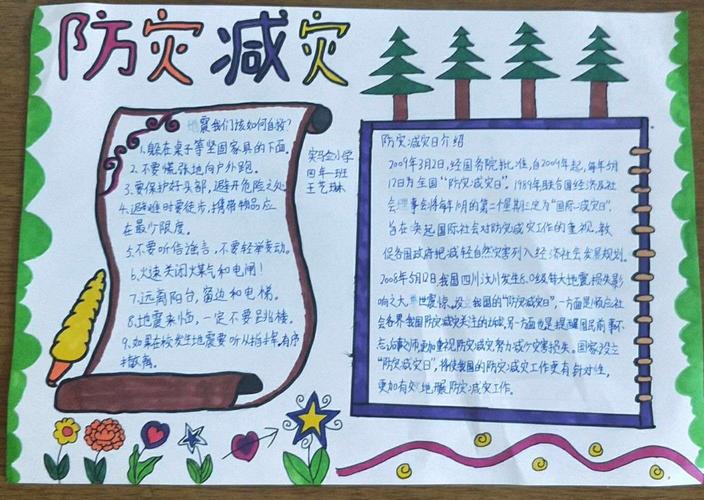 防灾减灾
地震我们该如何自救?
1.躲在桌子等坚固家具的下面。
2.不要慌张地向户外跑。
3.要保护好头部,避开危险之处
4.避难时要徒步,携带物品应
在最少限度。
5.不要听信谣言,不要轻举妄动。
6.火速关闭煤气和电闸!
7.远离阳台,窗边和电梯。
8.地震来临,一定不要跳楼。
9.如果在校发生地震要听从指挥,有序
撤离。
实马仝小学
四年一班
王艺琳
防灾减灾日介绍
2009年3月2日,经国务院批准,自2009年起,每年5月
12日为全国“防灾减灾日”。1989年联合国经济及社
会理事会将每年10月的第二个星期三定为“国际减灾日”。
旨在唤起国际社会对防灾减灾工作的重视,敦
促各国政府把减轻自然灾害列入经济社会发展规划。
2008年5月12日,我国四川汶川发生8.0级特大地震,损失影
响之大,举世震惊。设立我国的“防灾减灾日”,一方面是顺应社
会各界我国防灾减灾关注的诉求,另一方面也是提醒国民前事不
忘,后事之师,更加重视防灾减灾,努力减少灾害损失。国家设立
“防灾减灾日”,将使我国的防灾减灾工作更有针对性,
更加有效地开展防灾减灾工作。